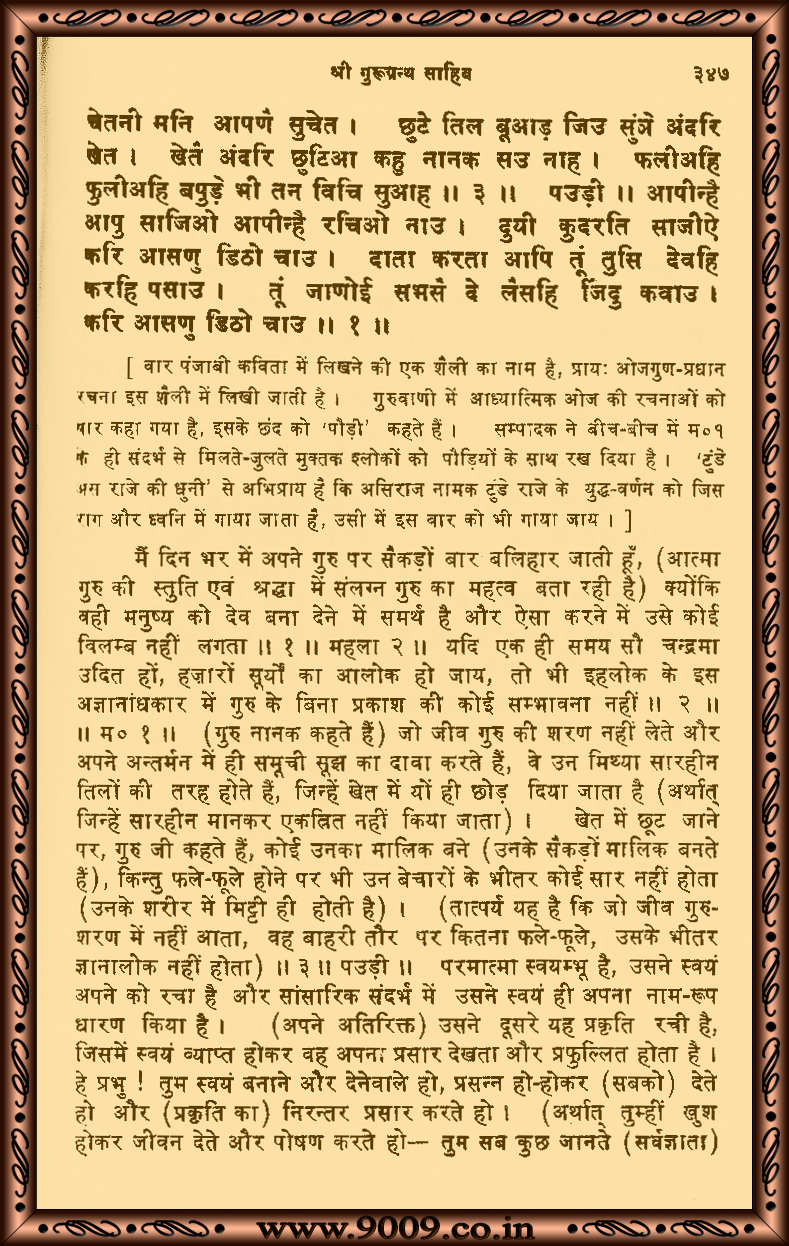 श्री गुरूग्रन्थ साहिब ३४७
चेतनी मनि आपणै सुचेत । छुटे तिल बूआड़ जिउ सुंञे अंदरि
खेत । खेतै अंदरि छुटिआ कहु नानक सउ नाह । फलीअहि
फुलीअहि बपुड़े भी तन विचि सुआह ॥ ३ ॥ पउड़ी ॥ आपीन्है
आपु साजिओ आपीन्है रचिओ नाउ । दुयी कुदरति साजीऐ
करि आसणु डिठो चाउ । दाता करता आपि तूं तुसि देवहि
करहि पसाउ । तूं जाणोई सभसै दे लैसहि जिंदु कवाउ ।
करि आसणु डिठो चाउ ॥ १ ॥
[ वार पंजाबी कविता में लिखने की एक शैली का नाम है, प्रायः ओजगुण-प्रधान
रचना इस शैली में लिखी जाती है । गुरुवाणी में आध्यात्मिक ओज की रचनाओं को
वार कहा गया है, इसके छंद को ‘पौड़ी’ कहते हैं । सम्पादक ने बीच-बीच में म०१
के ही संदर्भ से मिलते-जुलते मुक्तक श्लोकों को पौड़ियों के साथ रख दिया है । ‘टुंडे
अस राजे की धुनी’ से अभिप्राय है कि असिराज नामक टुंडे राजे के युद्ध-वर्णन को जिस
राग और ध्वनि में गाया जाता है, उसी में इस बार को भी गाया जाय । ]
मैं दिन भर में अपने गुरु पर सैकड़ों बार बलिहार जाती हूँ, (आत्मा
गुरु की स्तुति एवं श्रद्धा में संलग्न गुरु का महत्व बता रही है) क्योंकि
वही मनुष्य को देव बना देने में समर्थ है और ऐसा करने में उसे कोई
विलम्ब नहीं लगता ॥ १ ॥ महला २ ॥ यदि एक ही समय सौ चन्द्रमा
उदित हों, हज़ारों सूर्यों का आलोक हो जाय, तो भी इहलोक के इस
अज्ञानांधकार में गुरु के बिना प्रकाश की कोई सम्भावना नहीं ॥ २ ॥
॥ म० १ ॥ (गुरु नानक कहते हैं) जो जीव गुरु की शरण नहीं लेते और
अपने अन्तर्मन में ही समूची सूझ का दावा करते हैं, वे उन मिथ्या सारहीन
तिलों की तरह होते हैं, जिन्हें खेत में यों ही छोड़ दिया जाता है (अर्थात्
जिन्हें सारहीन मानकर एकत्रित नहीं किया जाता) । खेत में छूट जाने
पर, गुरु जी कहते हैं, कोई उनका मालिक बने (उनके सैकड़ों मालिक बनते
हैं), किन्तु फले-फूले होने पर भी उन बेचारों के भीतर कोई सार नहीं होता
(उनके शरीर में मिट्टी ही होती है) । (तात्पर्य यह है कि जो जीव गुरु-
शरण में नहीं आता, वह बाहरी तौर पर कितना फले-फूले, उसके भीतर
ज्ञानालोक नहीं होता) ॥ ३ ॥ पउड़ी ॥ परमात्मा स्वयम्भू है, उसने स्वयं
अपने को रचा है और सांसारिक संदर्भ में उसने स्वयं ही अपना नाम-रूप
धारण किया है । (अपने अतिरिक्त) उसने दूसरे यह प्रकृति रची है,
जिसमें स्वयं व्याप्त होकर वह अपना प्रसार देखता और प्रफुल्लित होता है ।
हे प्रभु ! तुम स्वयं बनाने और देनेवाले हो, प्रसन्न हो-होकर (सबको) देते
हो और (प्रकृति का) निरन्तर प्रसार करते हो । (अर्थात् तुम्हीं खुश
होकर जीवन देते और पोषण करते हो— तुम सब कुछ जानते (सर्वज्ञाता)
www.9009.co.in